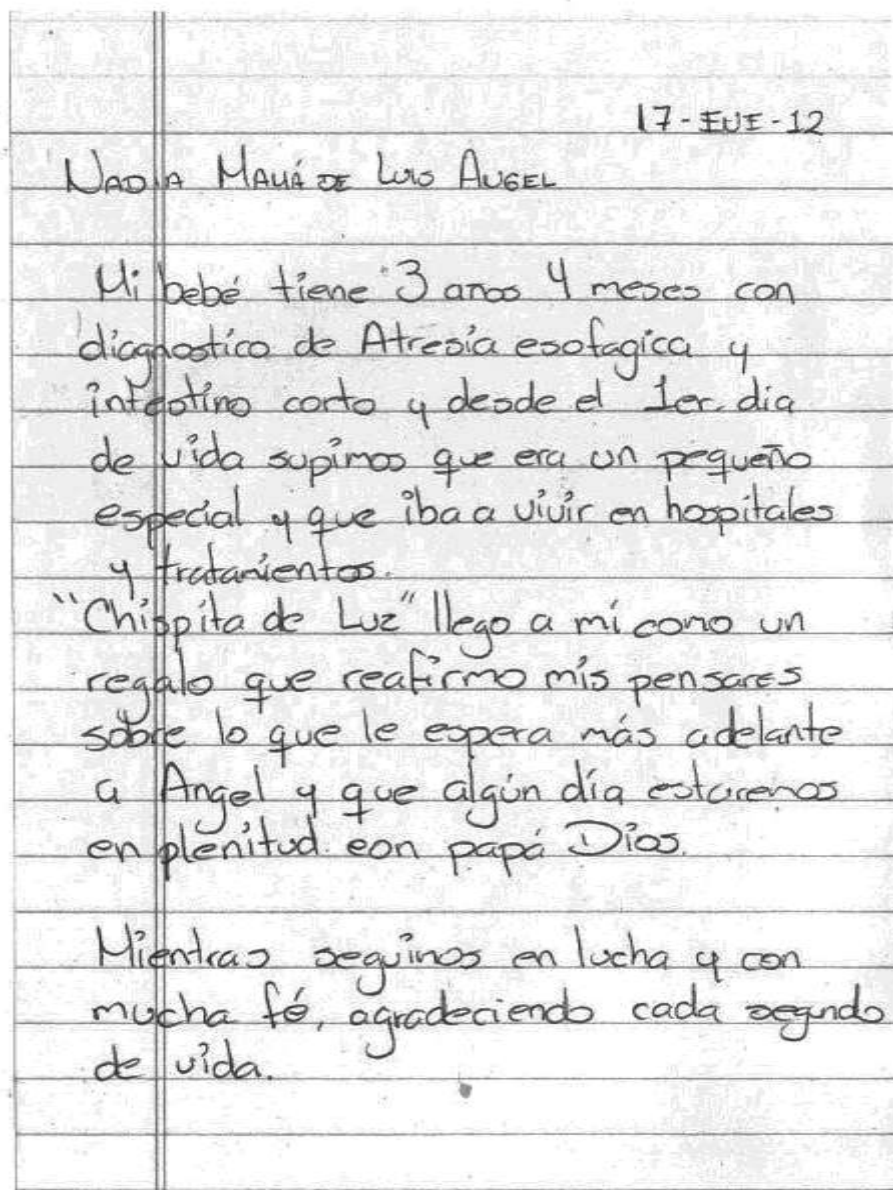 17-ENE-12
NADIA MAMÁ DE LUIS ANGEL
Mi bebé tiene 3 anos 4 meses con
diagnostico de Atresia esofagica y
intestino corto y desde el 1er. dia
de vida supimos que era un pequeño
especial y que iba a vivir en hospitales
y tratamientos.
"Chispita de Luz" llego a mí como un
regalo que reafirmo mis pensares
sobre lo que le espera más adelante
a Angel y que algún día estaremos
en plenitud con papá Dios.
Mientras seguimos en lucha y con
mucha fé, agradeciendo cada segundo
de vida.